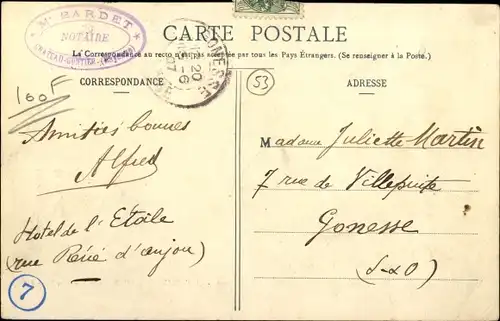 Me BARDET
NOTAIRE
CHATEAU-GONTIER (Mayenne)
CARTE POSTALE
La Correspondance au recto n'est pas acceptée par tous les Pays Étrangers. (Se renseigner à la Poste.)
GONESSE
20
5-6
07
CORRESPONDANCE
53
ADRESSE
160F
Amitiés bonnes
Alfred
Hotel de l'Étoile
(rue Réné d'anjou)
7
Madame Juliette Martin
7 rue de Villepinte
Gonesse
(S-&O)